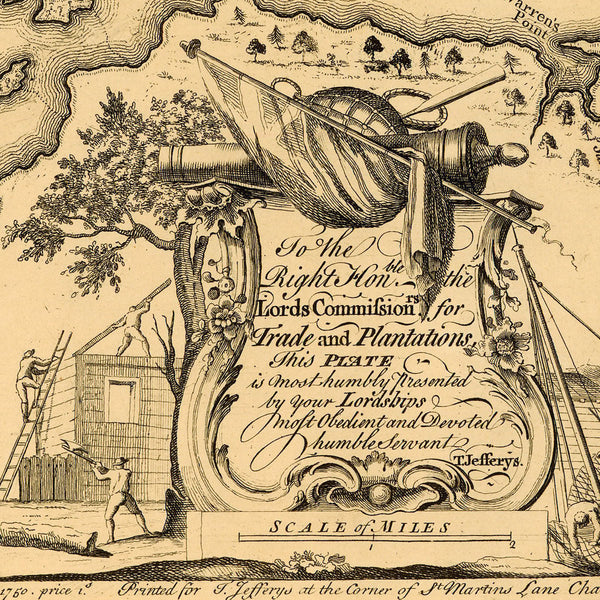 Warren's
Point
To the
Right Hon.ble the
Lords Commiſsion.rs for
Trade and Plantations,
This PLATE
is most humbly Presented
by your Lordships
moſt Obedient and Devoted
humble Servant
T. Jefferys.
SCALE of MILES
1 2
1750. price 1.s Printed for T. Jefferys at the Corner of St. Martins Lane Cha